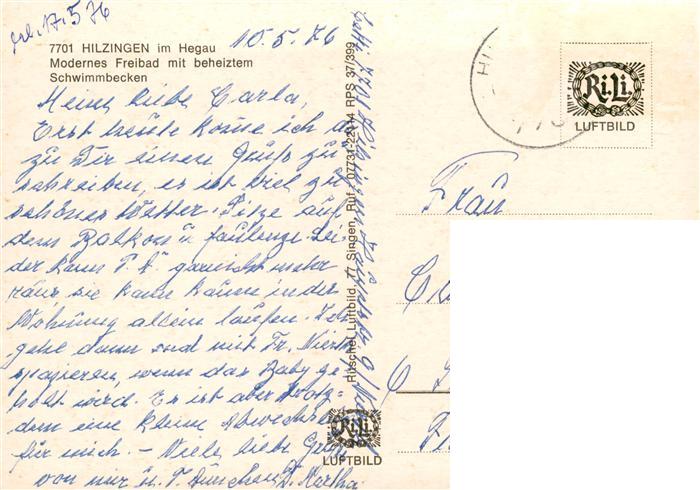 erh. 17.5.76
7701 HILZINGEN im Hegau
Modernes Freibad mit beheiztem
Schwimmbecken
10.5.76
Meine liebe Carla,
Erst heute komme ich
zu Dir einen Gruß zu
schreiben, es ist viel zu
schönes Wetter. Sitze auf
dem Balkon u faulenze. Lei-
der kann T. D. garnicht mehr
raus sie kann kaum in der
Wohnung allein laufen. Ich
gehe dann und mit Fr.
spazieren, wenn das Baby ge-
holt wird. Es ist aber trotz-
dem eine kleine Abwechs
für mich. – Viele liebe Grüße
von mir u. T. Martha
Ritschel Luftbild, 77 Singen, Ruf: 07731-22114 RPS 37/399
7701 Hilzingen
Ri.Li.
LUFTBILD
Ri.Li.
LUFTBILD
Frau